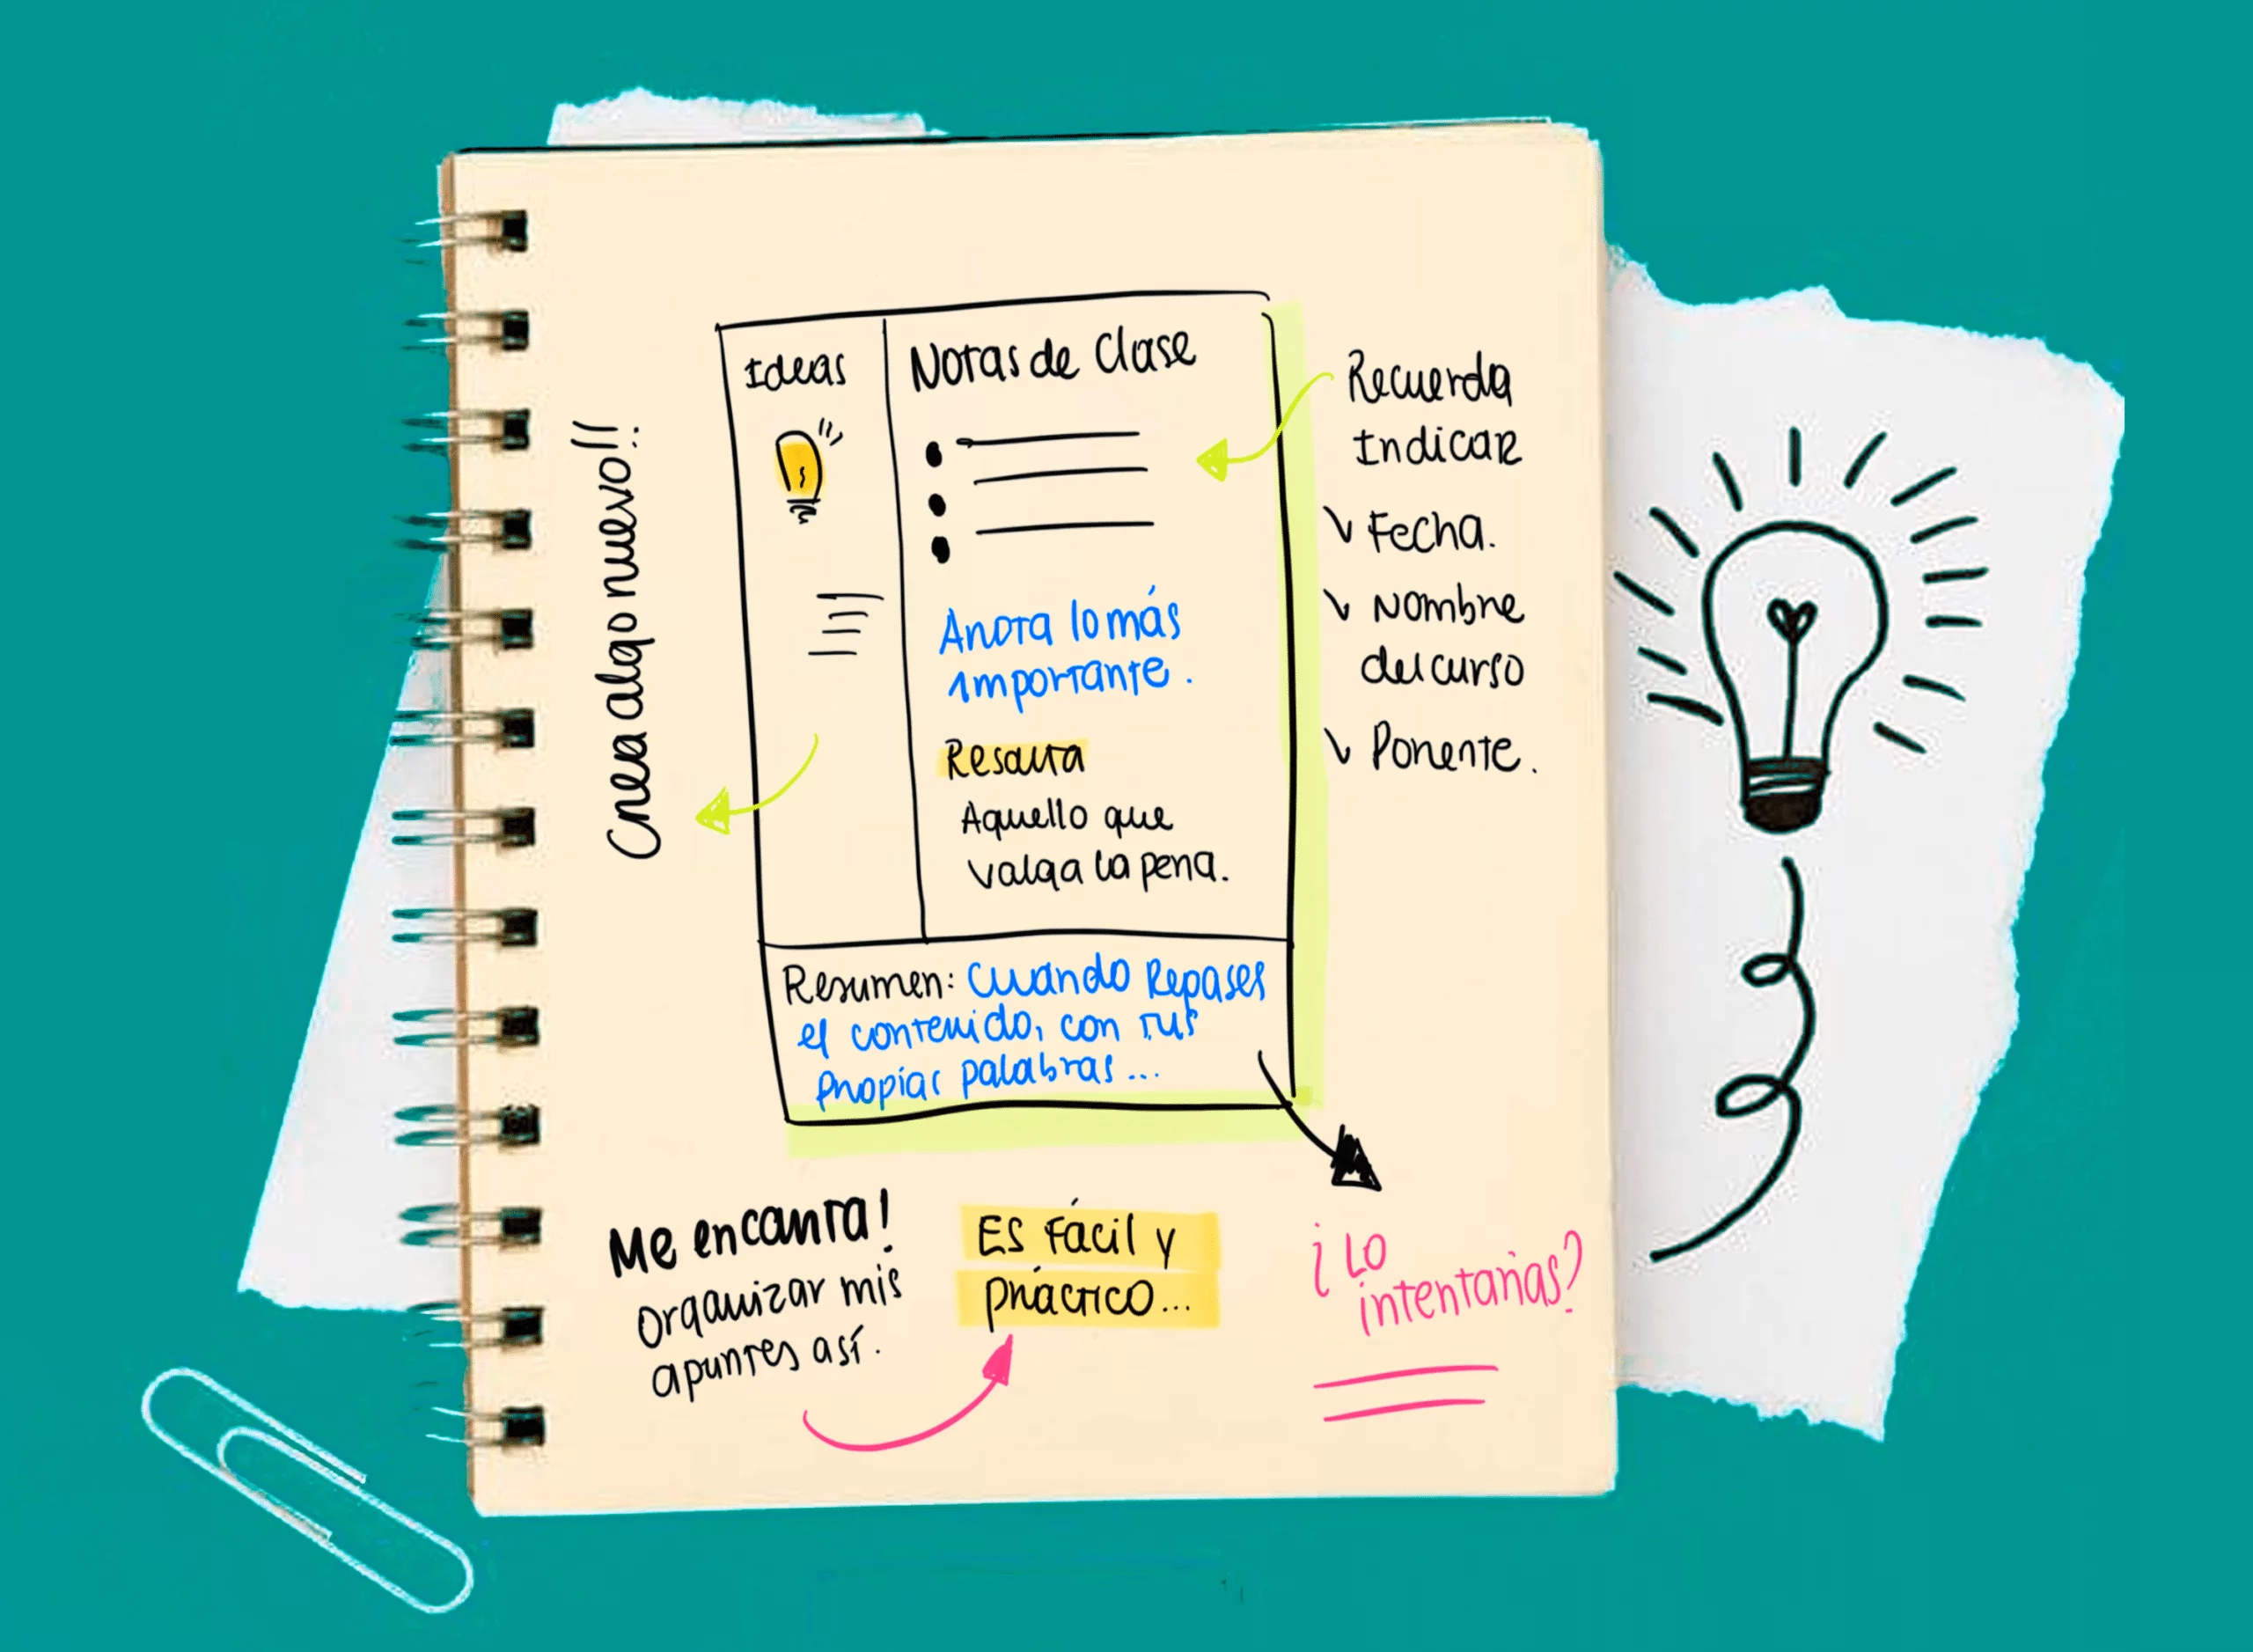 Crea algo nuevo!!
Ideas
Notas de Clase
Anota lo más
importante.
Resalta
Aquello que
valga la pena.
Resumen: Cuando Repases
el contenido, con tus
propias palabras...
Recuerda
Indicar
Fecha.
Nombre
del curso
Ponente.
Me encanta!
organizar mis
apuntes así.
Es fácil y
práctico...
¿Lo
intentarías?